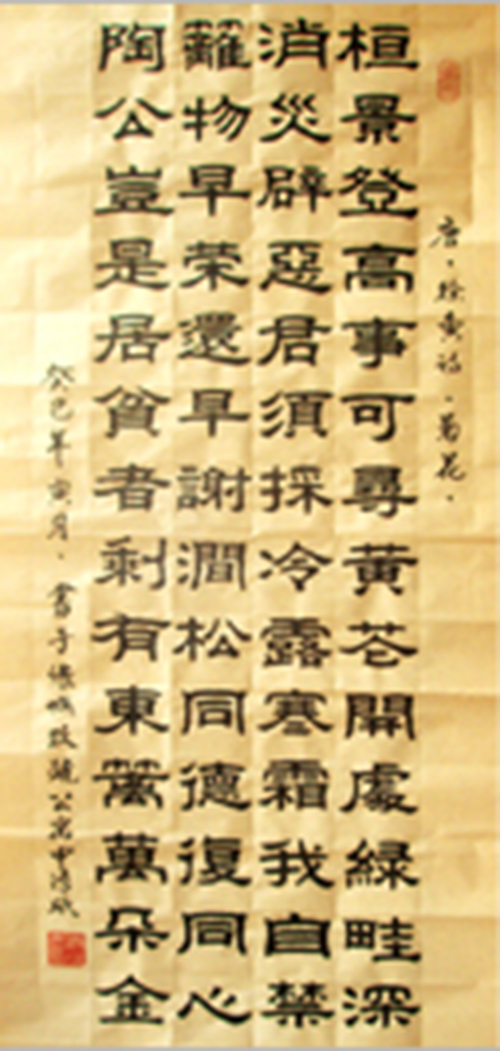 唐·徐夤詩·菊花·
桓景登高事可尋黃花開處綠畦深
消災辟惡君須採冷露寒霜我自禁
籬物早榮還早謝澗松同德復同心
陶公豈是居貧者剩有東籬萬朵金
癸巳年寅月·書于 公寓